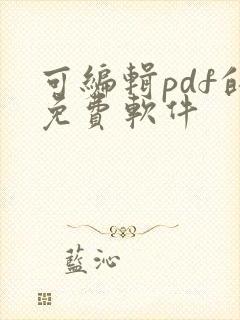 可編輯pdf的
免費軟件
藍沁